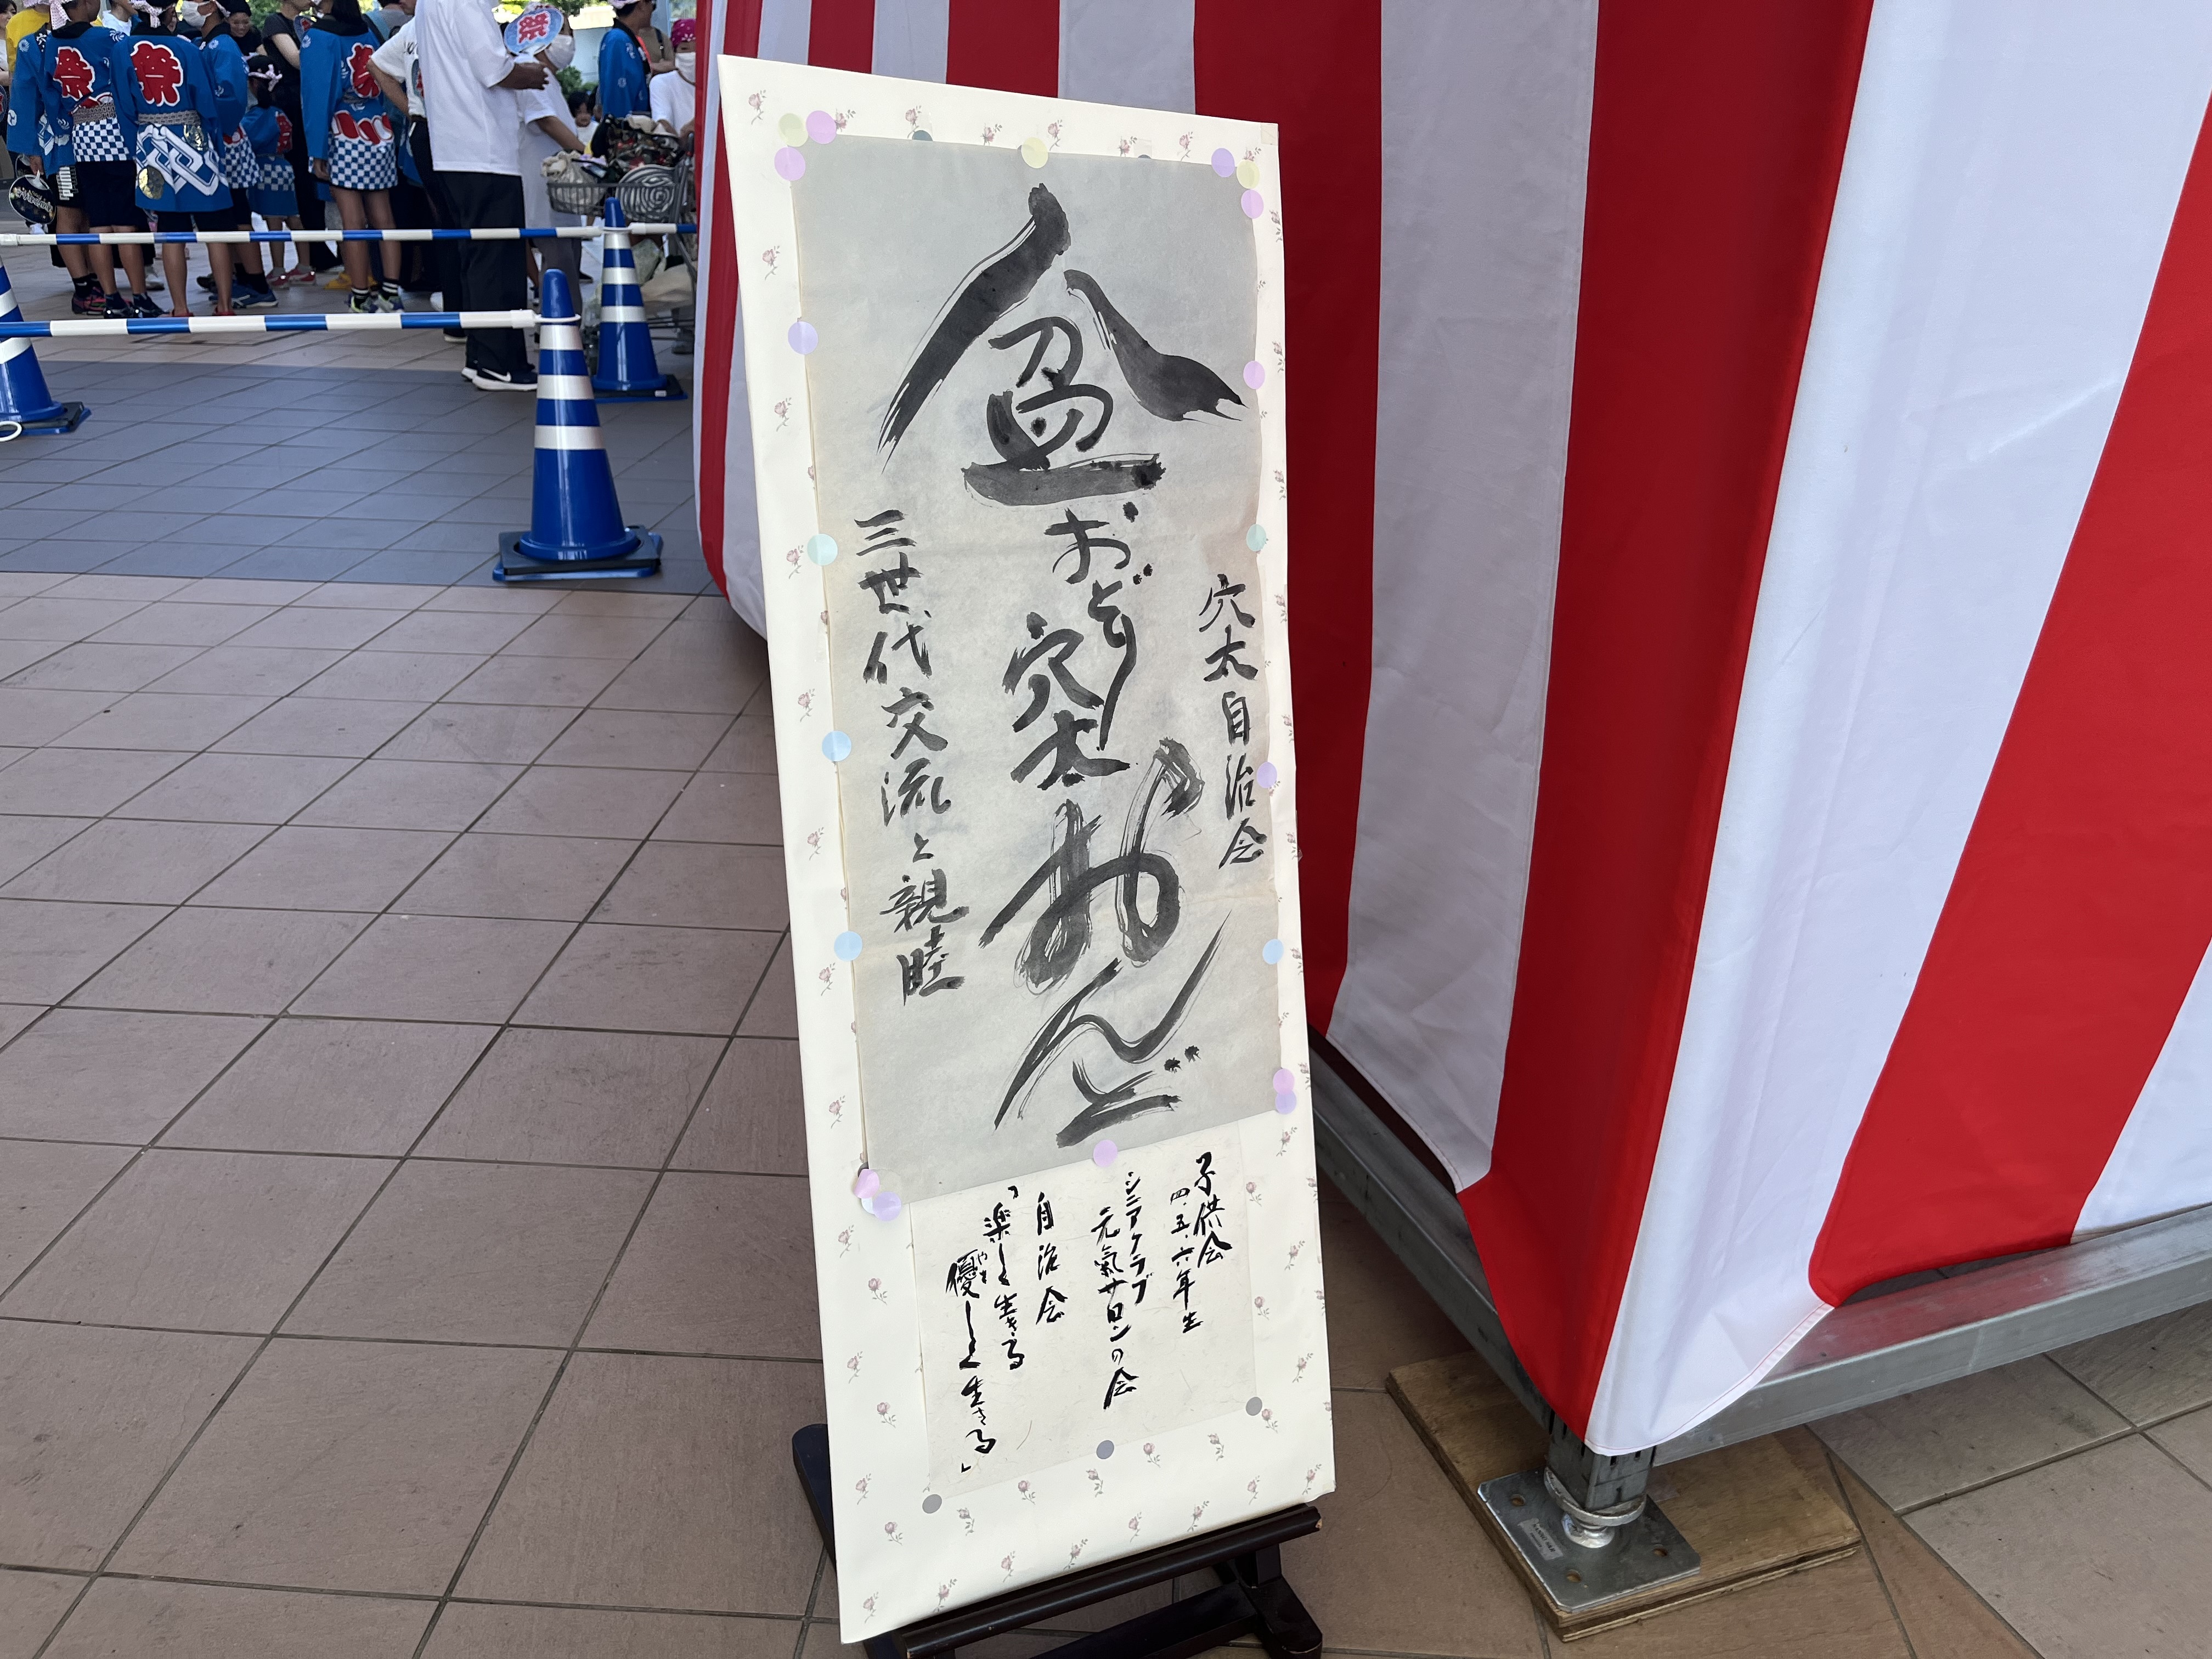 穴太自治会
盆おどり
穴太
おんど
三世代交流と親睦
子供会
四、五、六年生
シニアクラブ
元氣サロンの会
自治会
「楽しく生きる
優しく生きる」
やさ
祭
祭
祭
祭